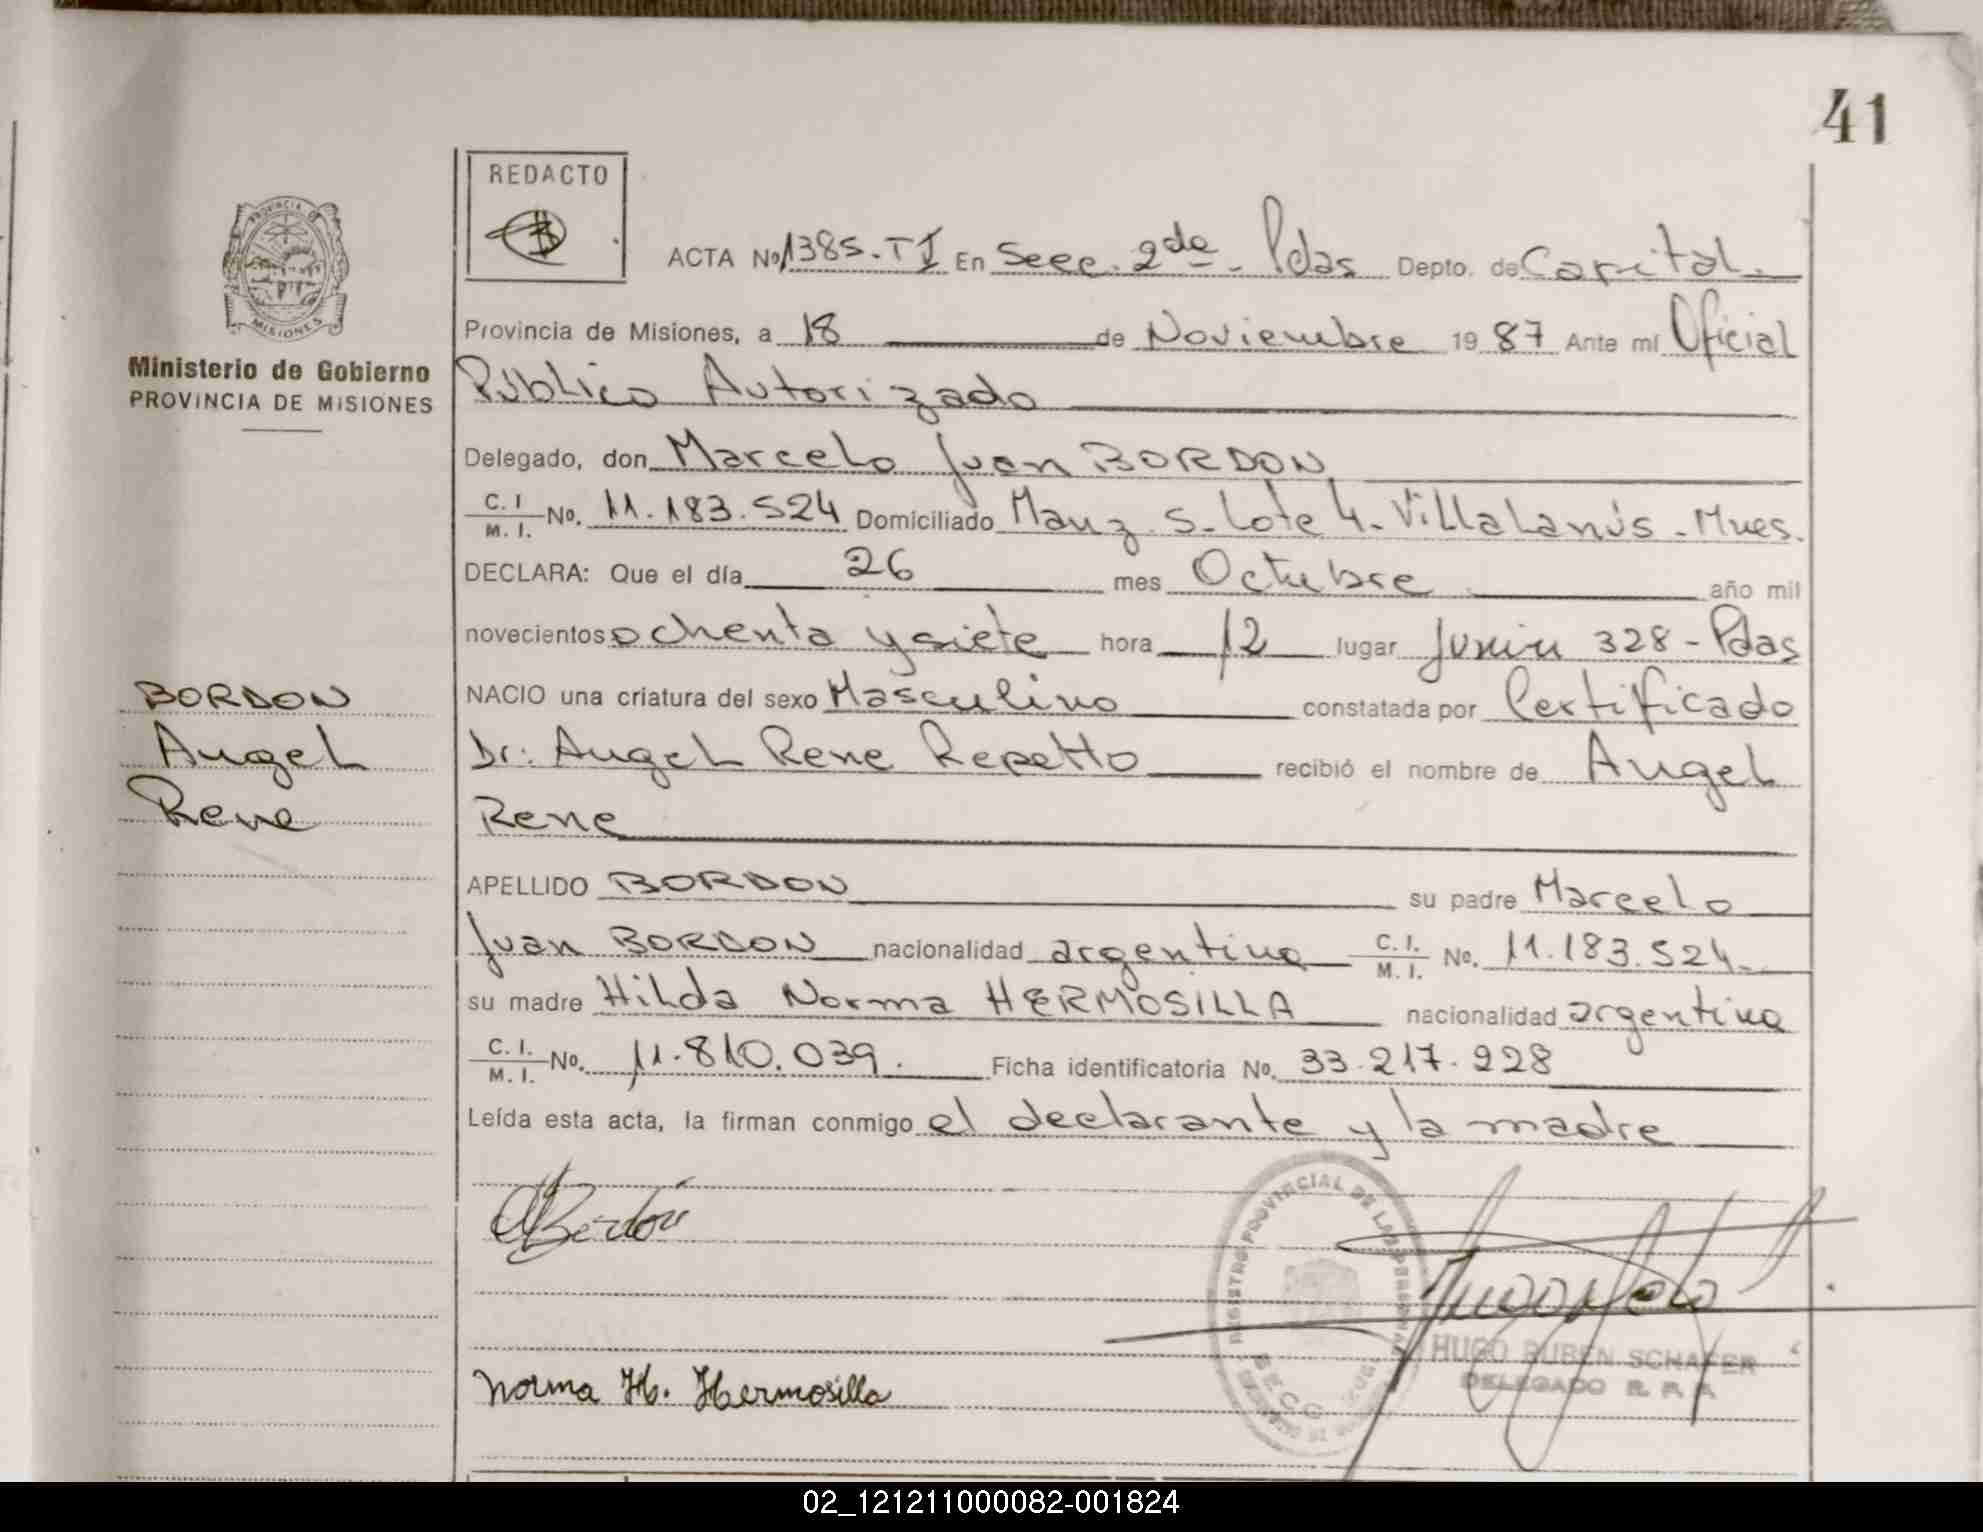 41
REDACTO
PROVINCIA DE
MISIONES
Ministerio de Gobierno
PROVINCIA DE MISIONES
ACTA No 1385. TI En Secc. 2da - Pdas Depto. de Capital.
Provincia de Misiones, a 18 de Noviembre 1987 Ante mí Oficial
Público Autorizado
Delegado, don Marcelo Juan BORDON
C. I. / M. I. No. 11.183.524 Domiciliado Manz. 5- Lote 4- Villa Lanús - Mnes.
DECLARA: Que el día 26 mes Octubre año mil
novecientos ochenta y siete hora 12 lugar Junin 328 - Pdas
NACIO una criatura del sexo Masculino constatada por Certificado
Dr: Angel Rene Repetto recibió el nombre de Angel
Rene
BORDON
Angel
Rene
APELLIDO BORDON su padre Marcelo
Juan BORDON nacionalidad argentina C. I. / M. I. No. 11.183.524
su madre Hilda Norma HERMOSILLA nacionalidad argentina
C. I. / M. I. No. 11.810.039. Ficha identificatoria No. 33.217.928
Leída esta acta, la firman conmigo el declarante y la madre
Bordón
REGISTRO PROVINCIAL DE LAS PERSONAS
SECC 2DA
HUGO RUBEN SCHAFER
DELEGADO R. P. P.
Norma H. Hermosilla
02_121211000082-001824